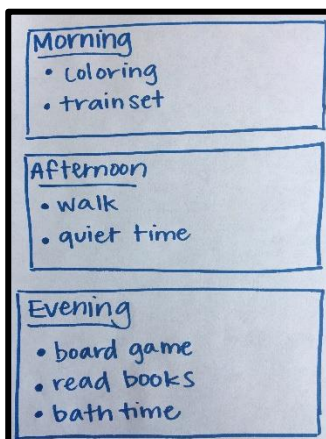 Morning
• coloring
• train set
Afternoon
• walk
• quiet time
Evening
• board game
• read books
• bath time